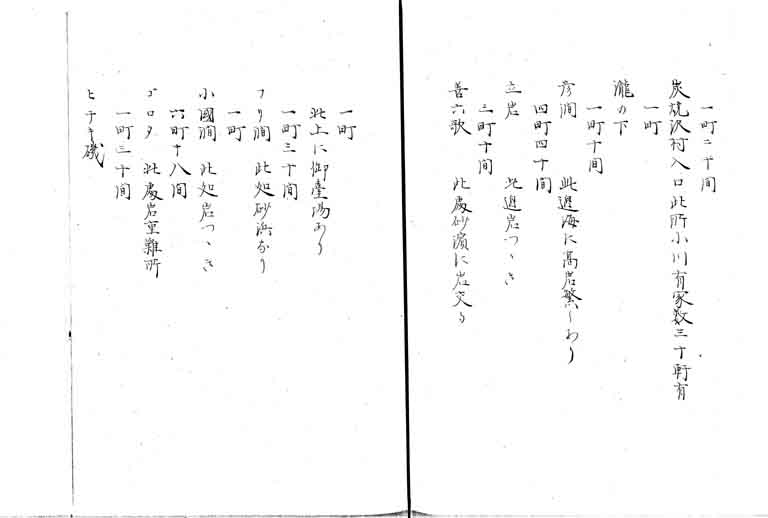 一町二十間
炭焼沢村入口此所小川有家数三十軒有
一町
瀧の下
一町十間
彦澗　此邉海に高岩繁しあり
四町四十間
立岩　此邉岩つゝき
二町十間
善六歌　此處砂濵に岩交る
一町
此上に御臺場あり
一町三十間
フリ澗　此処砂浜なり
一町
小國澗　此処岩つゝき
六町十八間
ゴロタ　此處岩重難所
一町三十間
ヒテキ磯